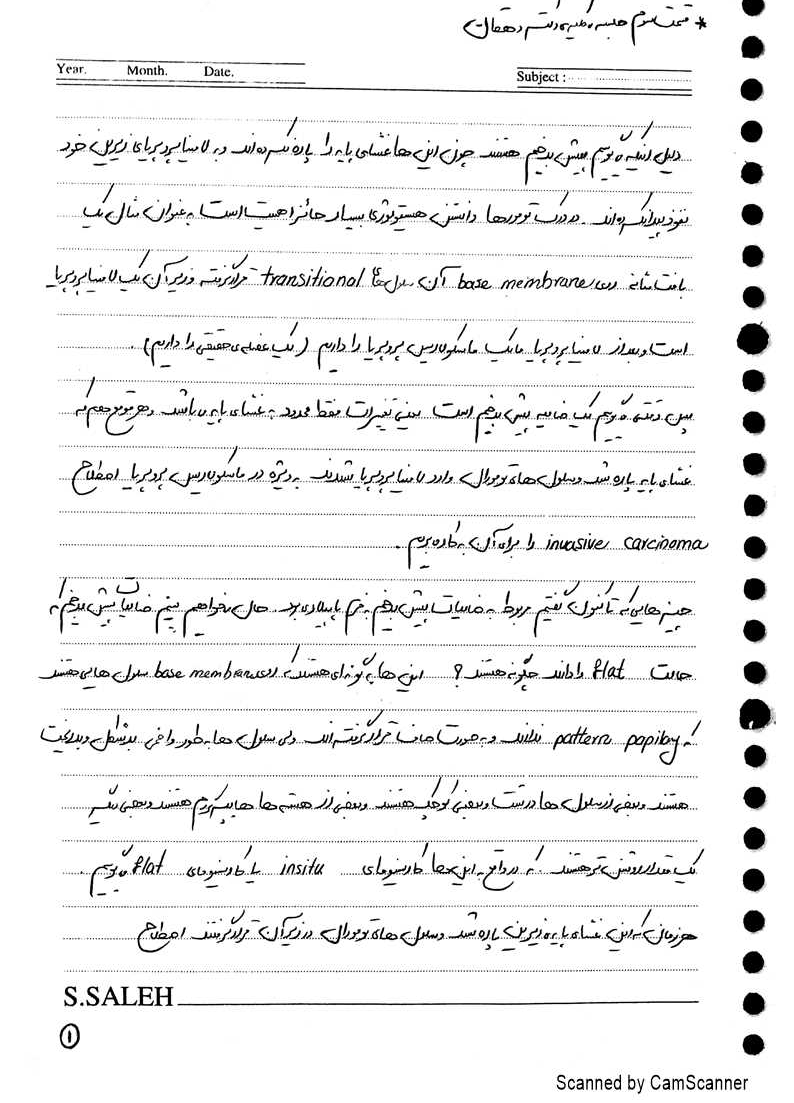 * قسمت سوم جلسه کلیه دکتر دهقان
Year. Month. Date.
Subject :
دلیل اینکه می گوییم پیش بدخیم هستند چون این ها غشای پایه را پاره نکرده اند و به لامینا پروپریای زیرین خود
نفوذ پیدا نکرده اند. در درک تومورها دانستن هیستولوژی بسیار حائز اهمیت است به عنوان مثال یک
بافت مثانه روی base membrane آن سلول های transitional قرار گرفته و زیر آن یک لامینا پروپریا
است و بعد از لامینا پروپریا ما یک ماسکولاریس پروپریا را داریم (یک عضله ی حقیقی را داریم).
پس وقتی می گوییم یک ضایعه پیش بدخیم است یعنی تغییرات فقط محدود به غشای پایه می باشد و هر موقع هم که
غشای پایه پاره شد و سلول های تومورال وارد لامینا پروپریا شدند به ویژه در ماسکولاریس پروپریا اصطلاح
invasive carcinoma را برای آن به کار می بریم.
چیز هایی که تا کنون گفتیم مربوط به ضایعات پیش بدخیم به فرم پاپیلاری بود. حال می خواهیم ببینیم ضایعات پیش بدخیم که
حالت flat را دارند چگونه هستند؟ این ها به گونه ای هستند که روی base membrane سلول هایی هستند
که pattern papillary ندارند و به صورت صاف قرار گرفته اند ولی سلول ها به طور واضحی بدشکل و بدریخت
هستند و بعضی از سلول ها درشت و بعضی کوچک هستند و بعضی از هسته ها هایپرکروم هستند و بعضی بقیه
یک مقدار روشن تر هستند. که در واقع به این ها کارسینومای insitu یا کارسینومای flat می گوییم.
هر زمانی که این غشای پایه زیرین پاره شد و سلول های تومورال در زیر آن قرار گرفتند اصطلاح
S.SALEH
①
Scanned by CamScanner